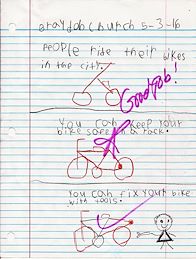 5-3-16
PEOPLE ride their bikes
in the city.
Good job!
You can keep your
bike safe in a rack.
You can fix your bike
with tools.